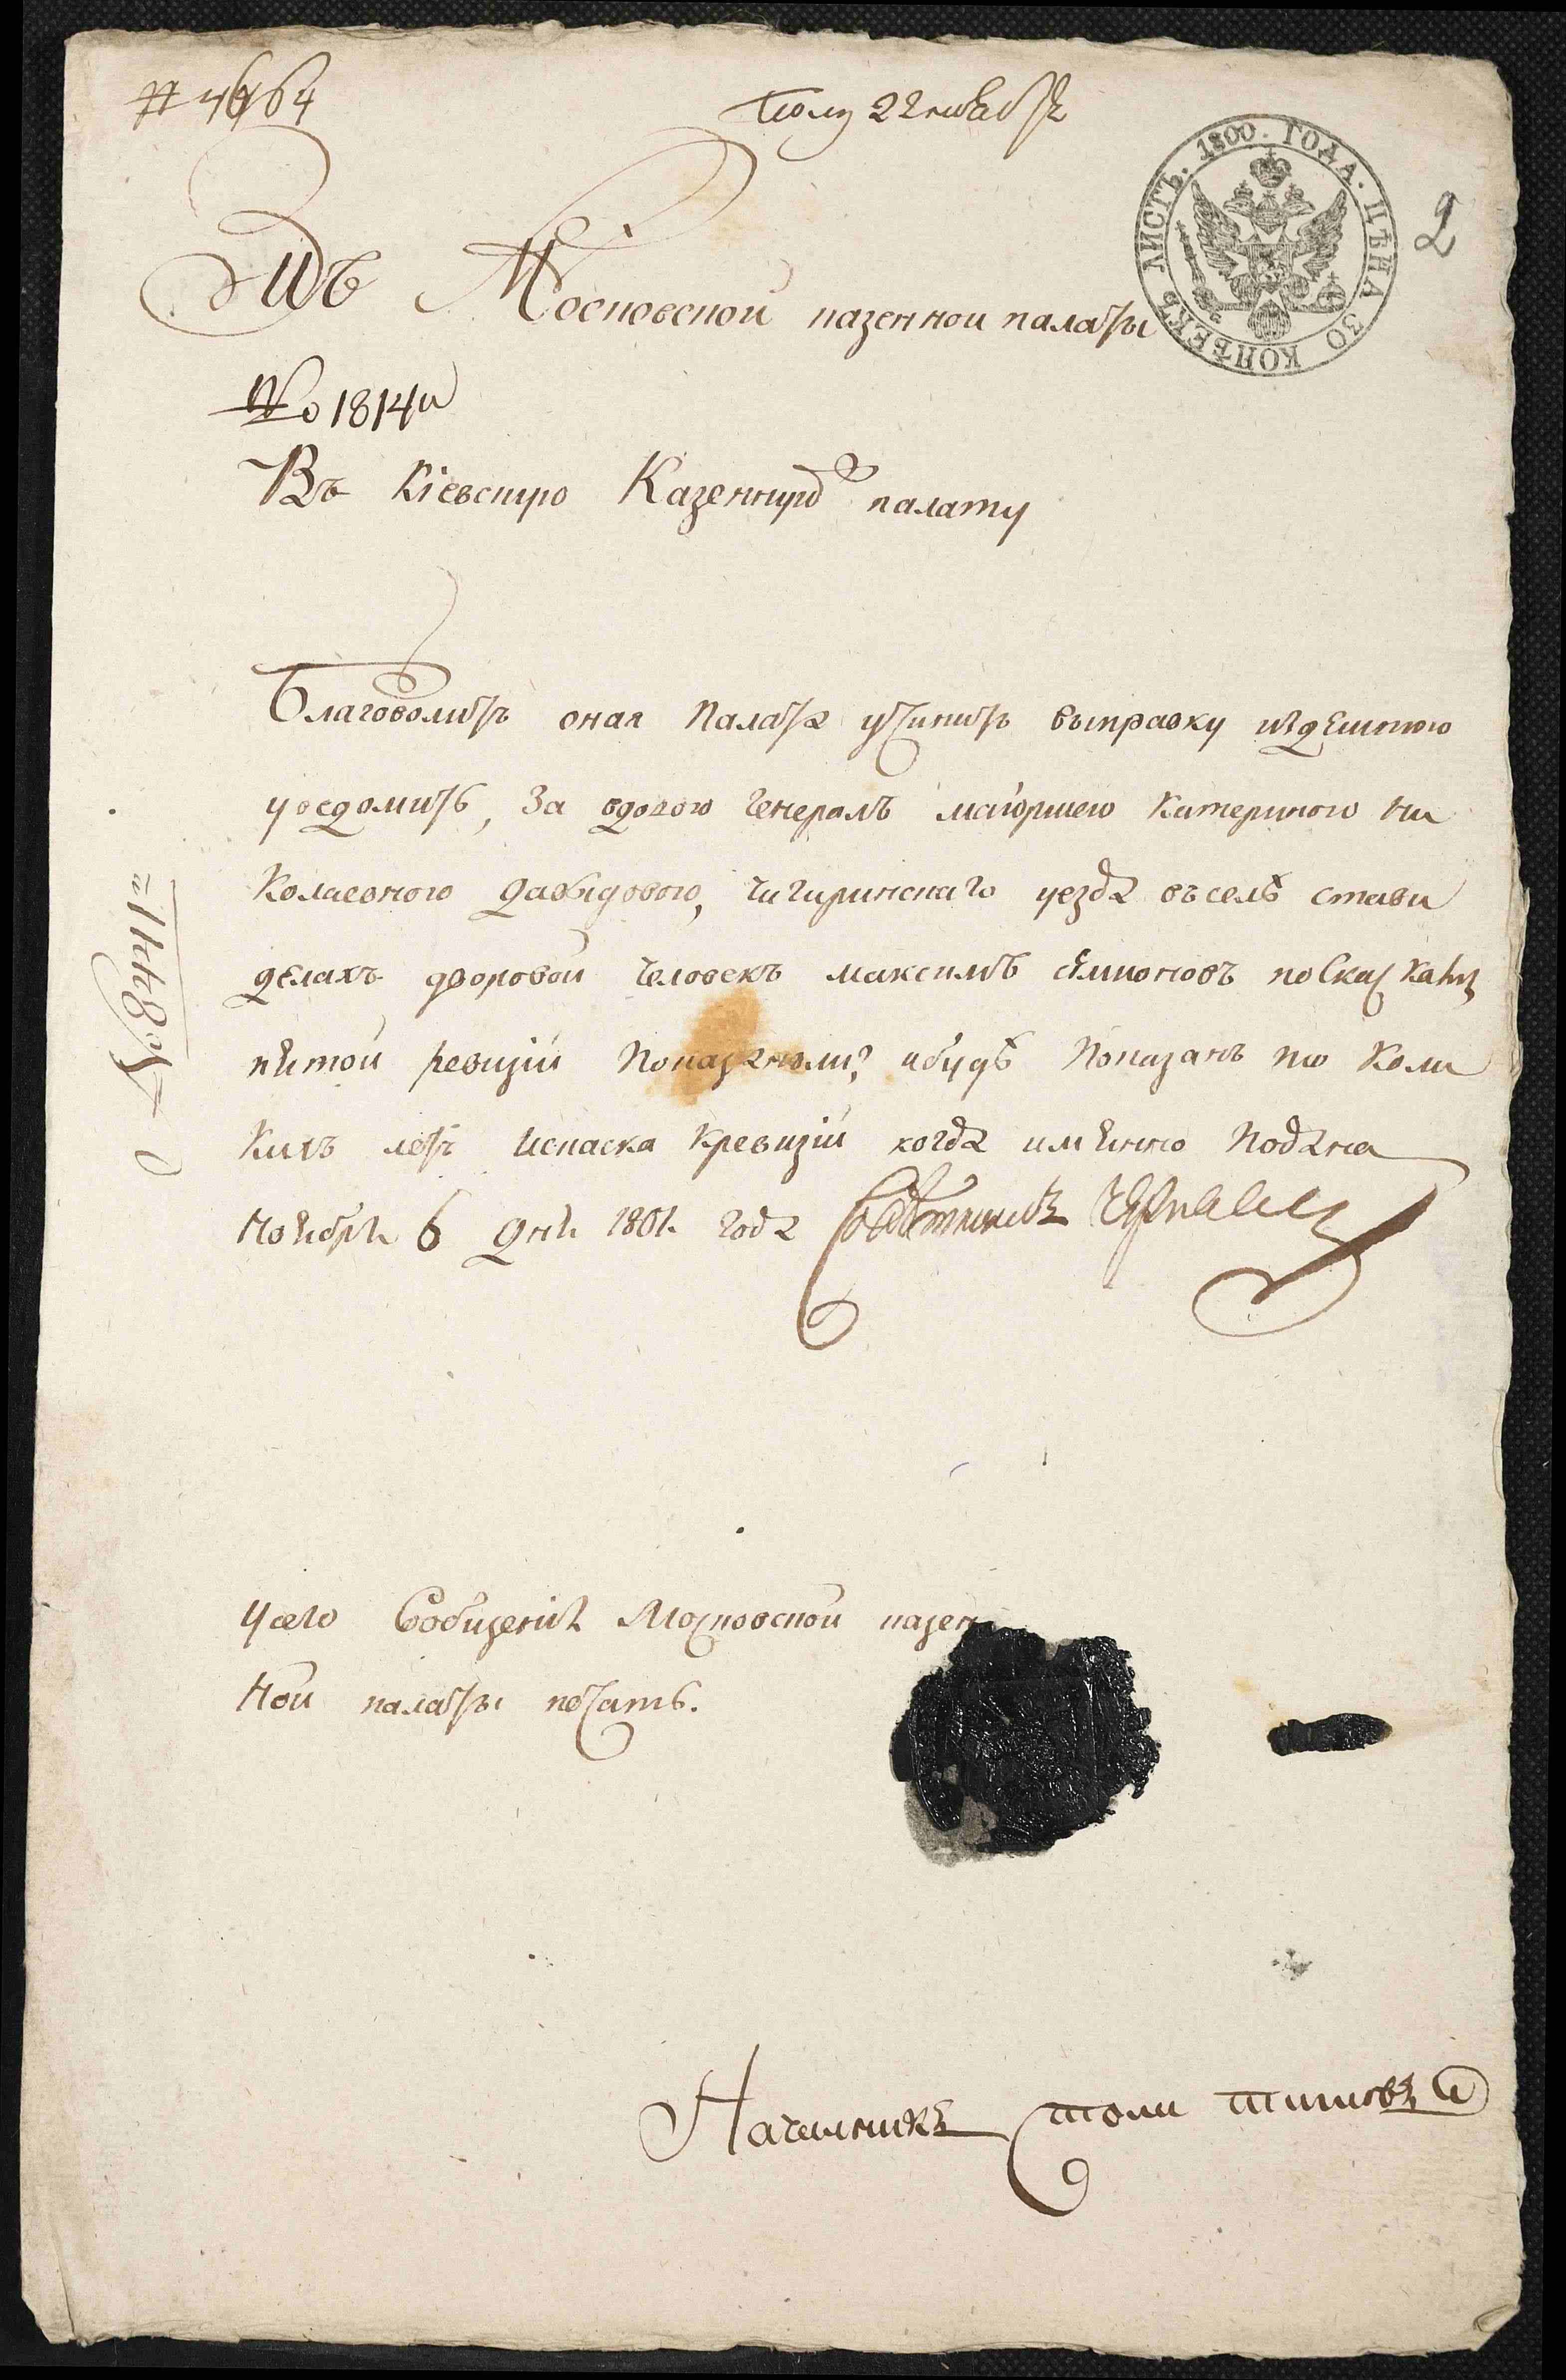 Полу 22 ноября
ЛИСТЪ. 1800. ГОДА. ЦѢНА 30 КОПѢЕКЪ
2
Изъ Московской казенной палаты
No 1814й
Въ Кіевскую Казенную палату
Благоволитъ оная Палата учинить выправку издешнюю
уведомить, За вдовою Генералъ маіоршею Катериною Ни
Колаевною давыдовою, чигиринскаго уезда въ селѣ стави
делахъ дворовой человекъ максимъ семионовъ по Скаскамъ
пятой ревизіи Показанъ ли? и будѣ Показанъ то Коли
Кихъ летъ Искаска Кревизіи когда имянно Подана
Ноября 6 дня 1801 года Советникъ
У сего Сообщенія Московской казен
ной палаты печать.
Началникъ стола